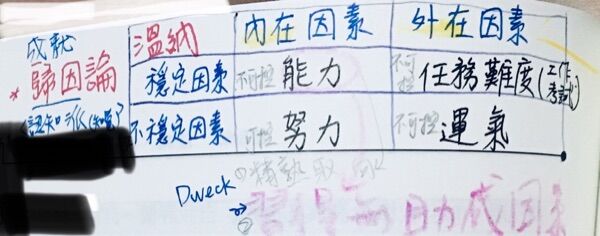 成就 溫納 內在因素 外在因素
*歸因論 穩定因素 不可控 能力 不可控 任務難度(工作考試)
不穩定因素 可控 努力 不可控 運氣
Dweck ①精熟取向
②